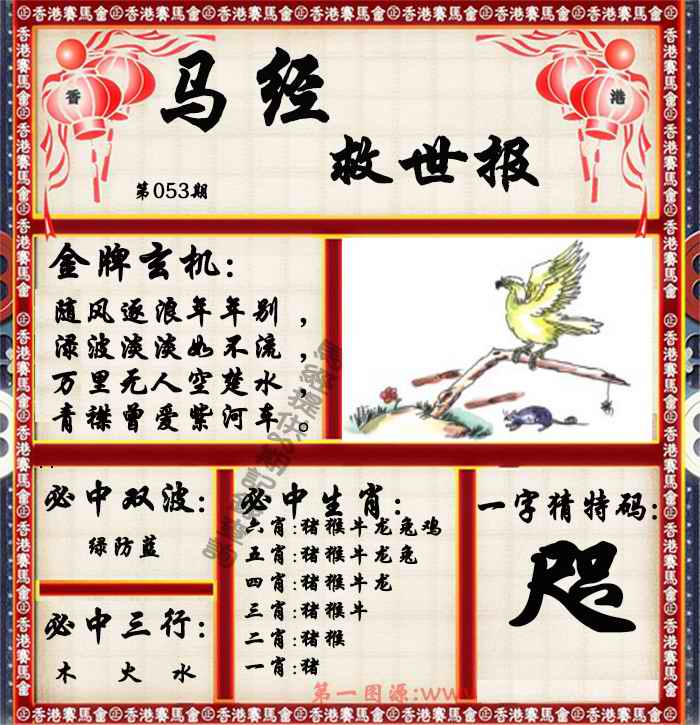 香港賽馬會
香 港
马经
救世报
第053期
金牌玄机:
随风逐浪年年别，
渌波淡淡如不流，
万里无人空楚水，
青襟曾爱紫河车。
必中双波:
绿防蓝
必中三行:
木 火 水
必中生肖:
六肖:猪猴牛龙兔鸡
五肖:猪猴牛龙兔
四肖:猪猴牛龙
三肖:猪猴牛
二肖:猪猴
一肖:猪
一字猜特码:
咫
第一图源:www